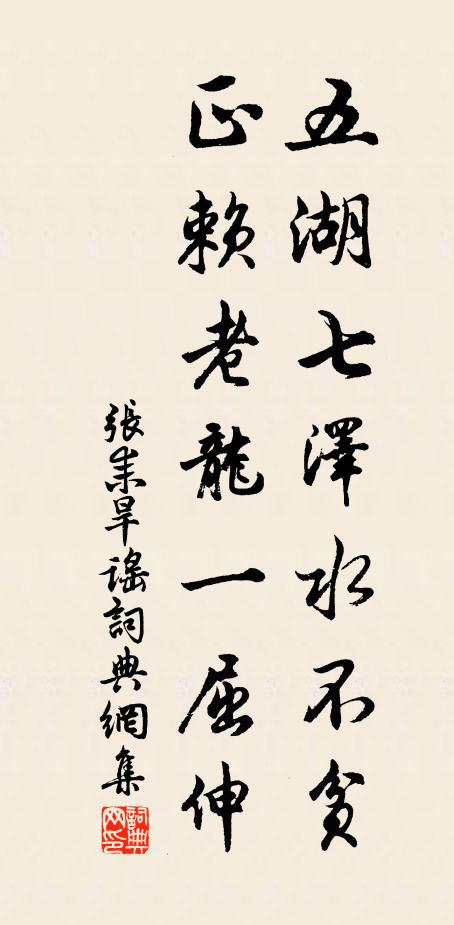 五湖七澤水不貪
正賴老龍一屈伸
張耒旱謠詞典網集
詞典网印